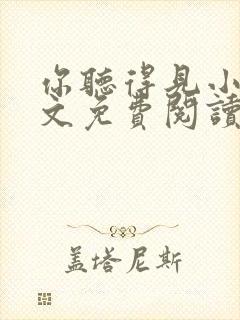 你聽得見小
文免費閱讀
盖塔尼斯